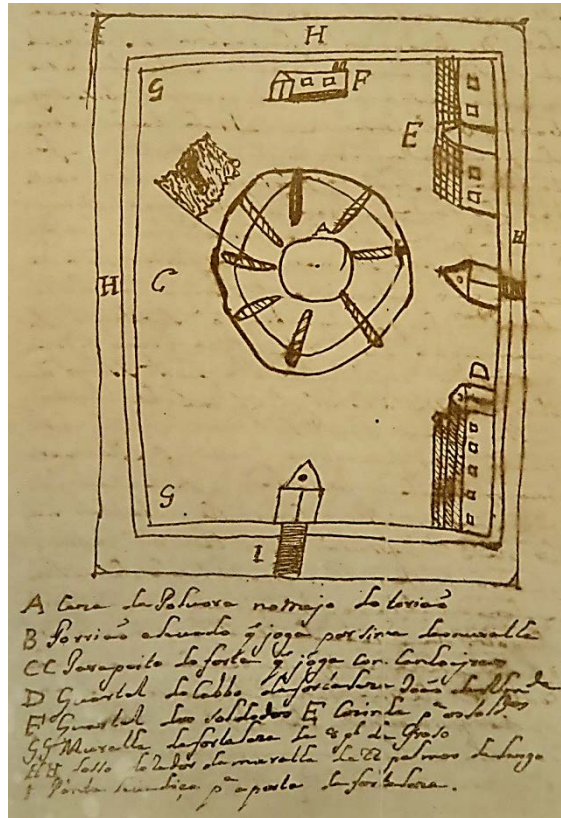 H
G
F
E
A
H
H
C
D
G
I
A Caza da Polvora no mejo do torião
B Torrião elevado q̃ joga por sima da muralla
CC Parapeito do forte q̃ joga con
D Quartel do Cabbo da fortaleza João de
E Quartel dos soldados E, Cozinha pª os soldos
GG Muralla da fortaleza de 8 pl de Groso
HH fosso da muralla de 22 palmos de largo
I Ponte levadiça pª a porta da fortaleza.